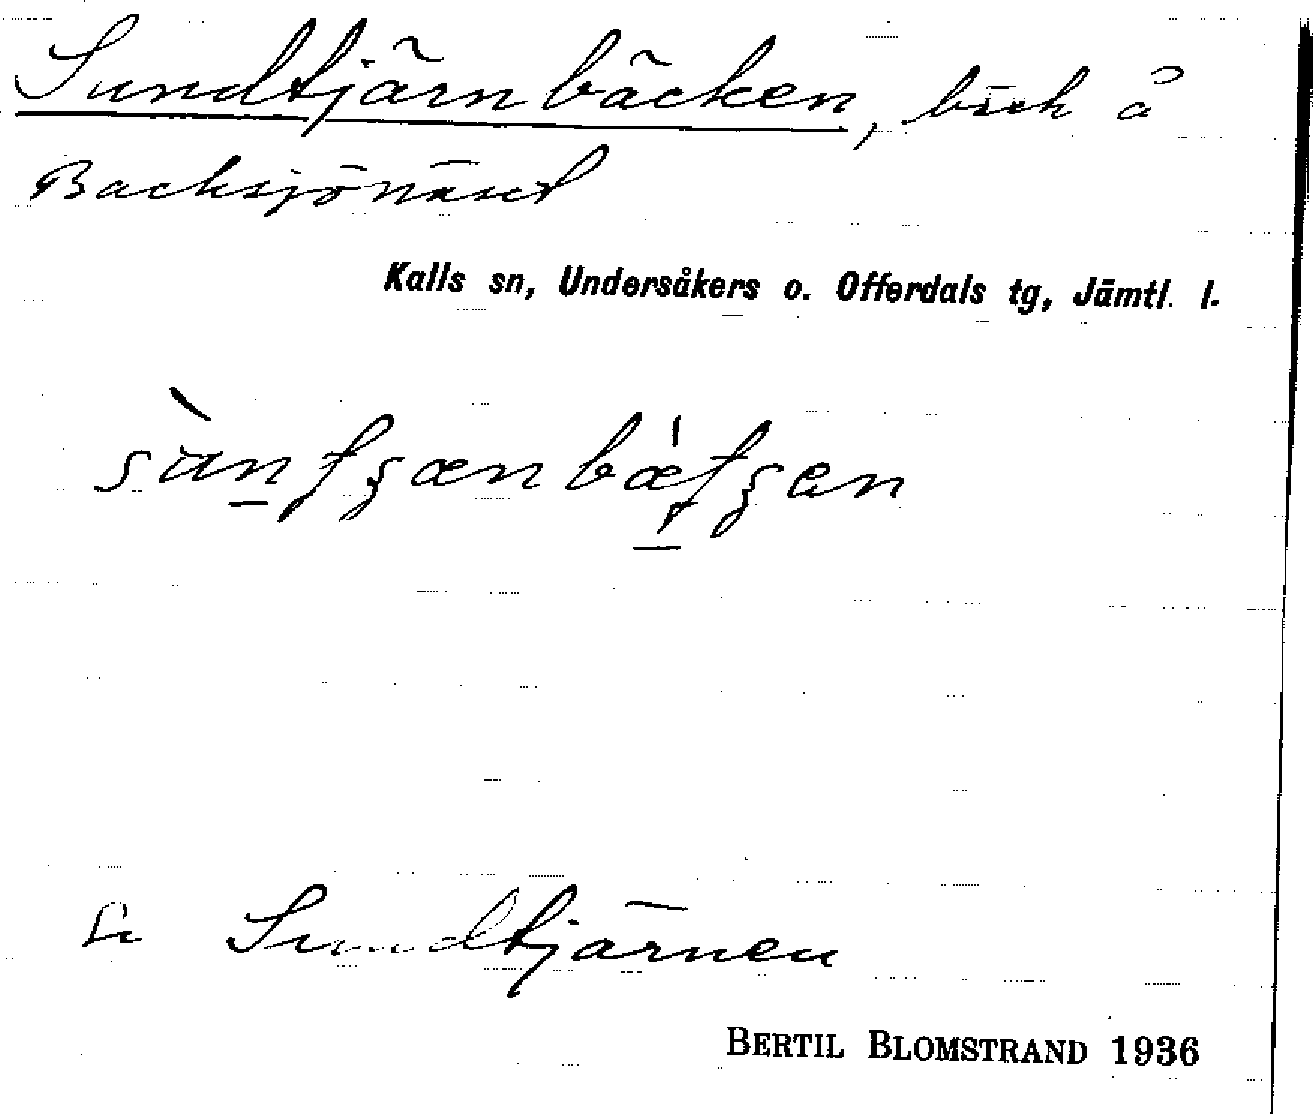 Sundtjärnbäcken, bäck å
Backsjönäset
Kalls sn, Undersåkers o. Offerdals tg, Jämtl. l.
Se Sundtjärnen
BERTIL BLOMSTRAND 1936